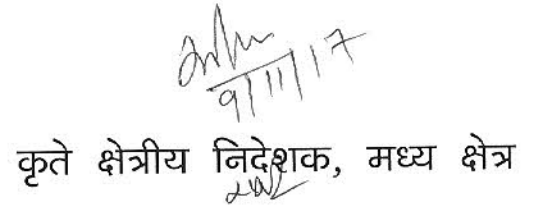 9/11/17
कृते क्षेत्रीय निदेशक, मध्य क्षेत्र